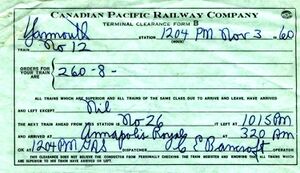 CANADIAN PACIFIC RAILWAY COMPANY
TERMINAL CLEARANCE FORM B
Yarmouth STATION 1204 PM Nov 3 1960
No 12
ORDERS FOR YOUR TRAIN ARE 260-8-
ALL TRAINS WHICH ARE SUPERIOR AND ALL TRAINS OF THE SAME CLASS DUE TO ARRIVE AND LEAVE, HAVE ARRIVED
AND LEFT EXCEPT Nil
THE NEXT TRAIN AHEAD FROM THIS STATION IS No 26 IT LEFT AT 1015 PM
AND ARRIVED AT Annapolis Royal AT 320 AM
OK 1204 PM DISPATCHER C E Bancroft OPERATOR
THIS CLEARANCE DOES NOT RELIEVE THE CONDUCTOR FROM PERSONALLY CHECKING THE TRAIN REGISTER AND KNOWING THE ALL TRAINS WHICH